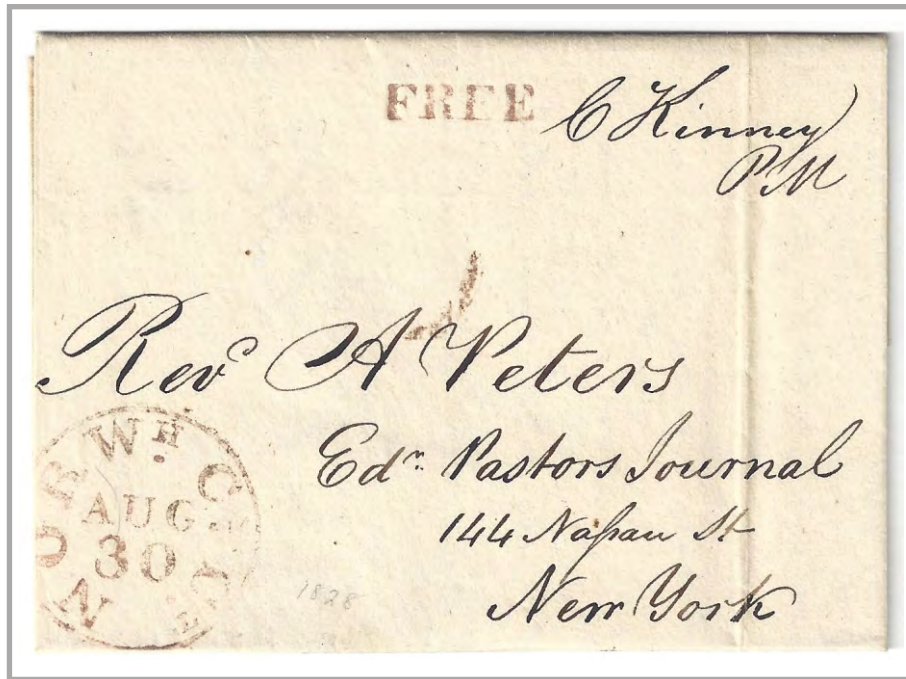 FREE
C Kinney
PM
Revd A Peters
Edr Pastors Journal
144 Naſsau St
New York
NORWH. C
AUG.
30
1828